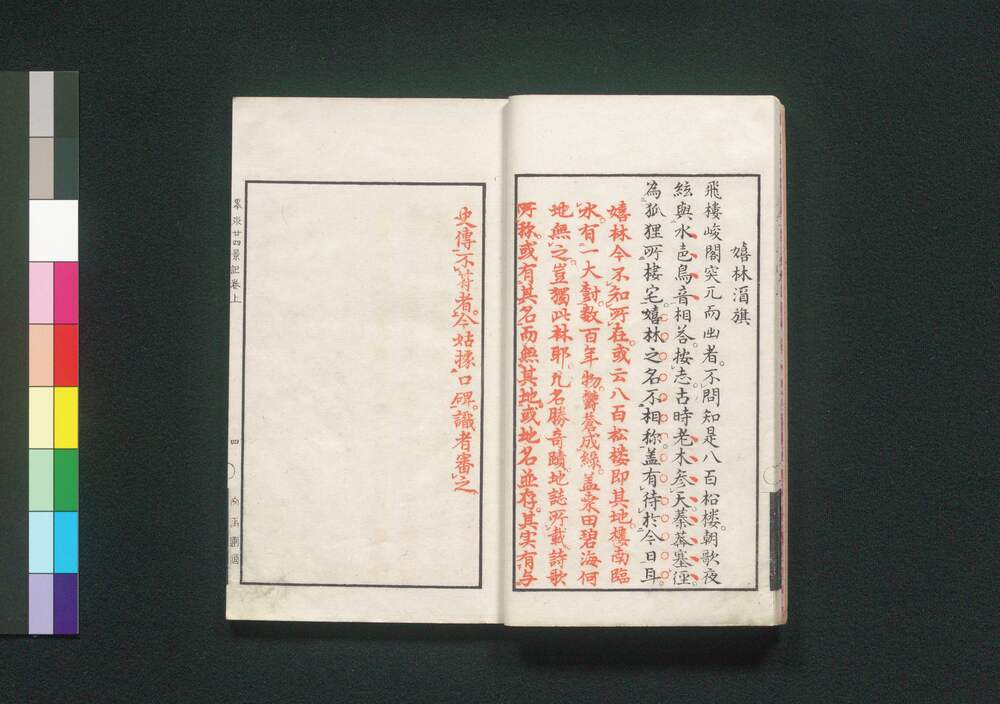 嬉林酒旗
飛樓峻閣突兀而出者。不問知是八百松楼。朝歌夜
絃與水色鳥音相答。按志。古時老木參天蓁莽塞徑。
為狐狸所棲宅。嬉林之名不相称。盖有待於今日耳。
嬉林今不知所在。或云八百松楼即其地。樓南臨
水。有一大樹。数百年物。鬱蒼成緑。盖桒田碧海何
地無之。豈獨此林耶。凢名勝奇蹟。地誌所載詩歌
所称。或有其名而無其地。或地名並存。其実有与
史傳不符者。今姑據口碑。識者審之
墨水廿四景記卷上
四